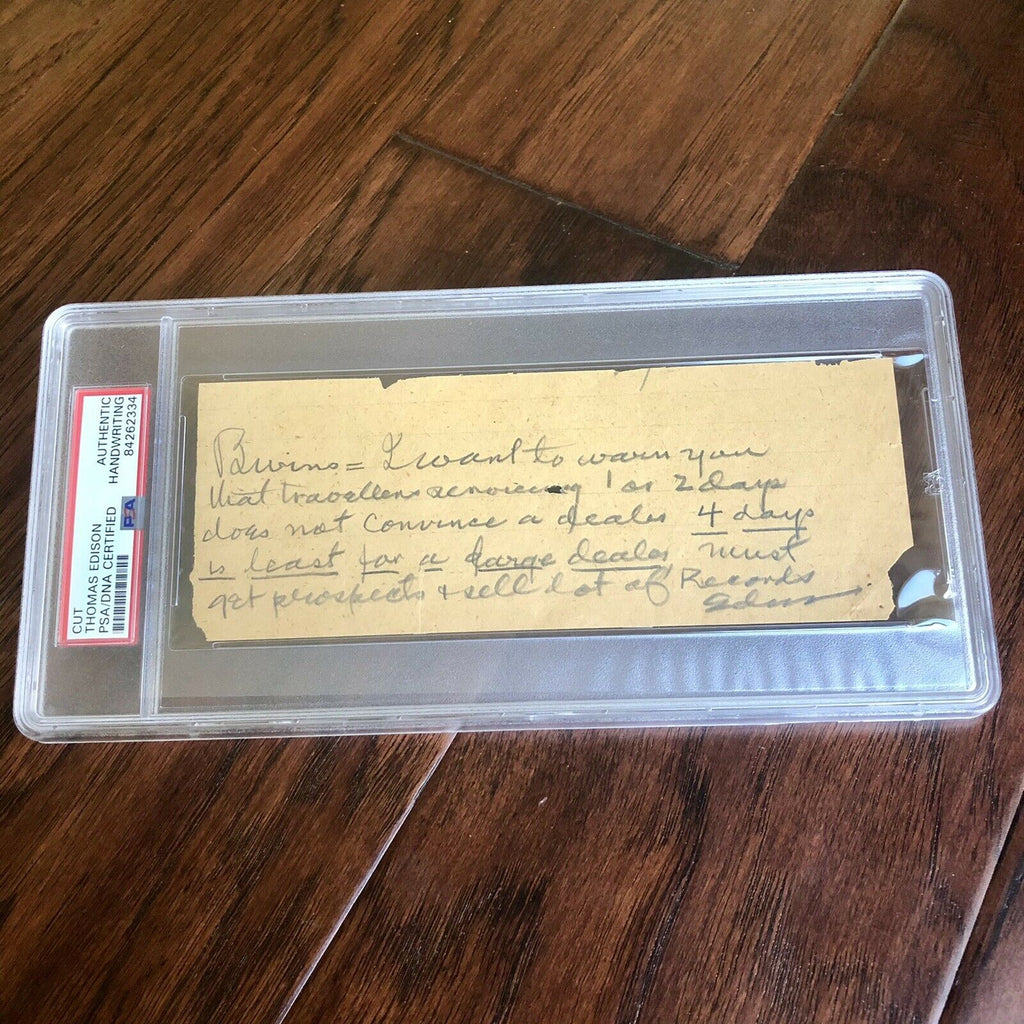 CUT
THOMAS EDISON
PSA/DNA CERTIFIED
AUTHENTIC
HANDWRITING
84262334
Bivins = I want to warn you
that travellers servicing 1 or 2 days
does not convince a dealer 4 days
is least for a large dealer, must
get prospects + sell lot of Records
Edison